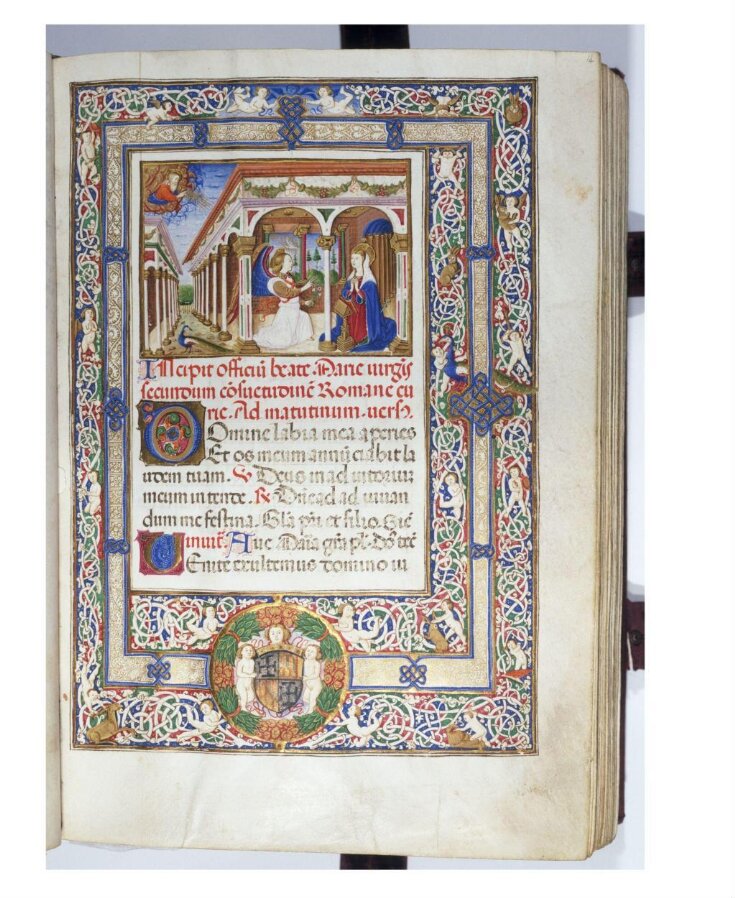 Incipit officiū beate Marie uirgīs
secundum cōsuetudinē Romane cu
rie. Ad matutinum. uerſ.
Domine labia mea aperies
Et os meum annūciabit la
udem tuam. Deus in ad iutorium
meum intende. Dn̄e ad ad iuuan
dum me festina. Glā pr̄i et filio. Sić
Inuit. Aue Maīa grā pl. Dn̄s tec̄
Uenite exultemus domino iu